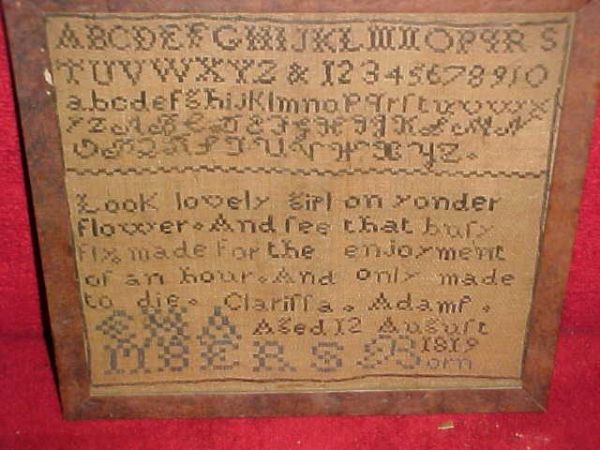 ABCDEFGHIJKLMNOPQRS
TUVWXYZ & 12345678910
abcdefghijklmnopqrſtuvwx
yz ABCDEFGHIJKLMN
OPQRSTUVWXYZ.
Look lovely girl on yonder
flower. And ſee that buſy
fly made for the enjoyment
of an hour. And only made
to die. Clariſſa. Adamſ.
Aged 12 Auguſt
1819
Born